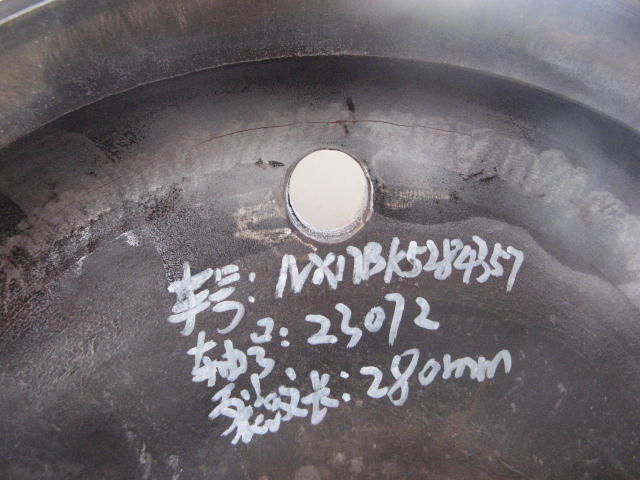 车号：NX17BK5284357
轴号：23072
裂纹长：280mm